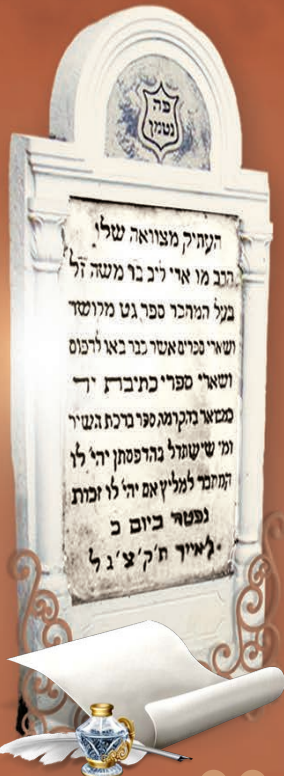 פה
נטמן
העתיק מצוואה שלי
הרב מו ארי ליב בר משה זל
בעל המחבר ספר גט מקושר
ושארי ספרים אשר כבר באו לדפוס
ושארי ספרי כתיבת יד
כמבואר בהקדמה ספר ברכת השיר
ומי שישתדל בהדפסתן יהי' לו
המחבר למליץ אם יהי' לו זכות
נפטר ביום כ
לאייר ת'ק'צ'ג ל